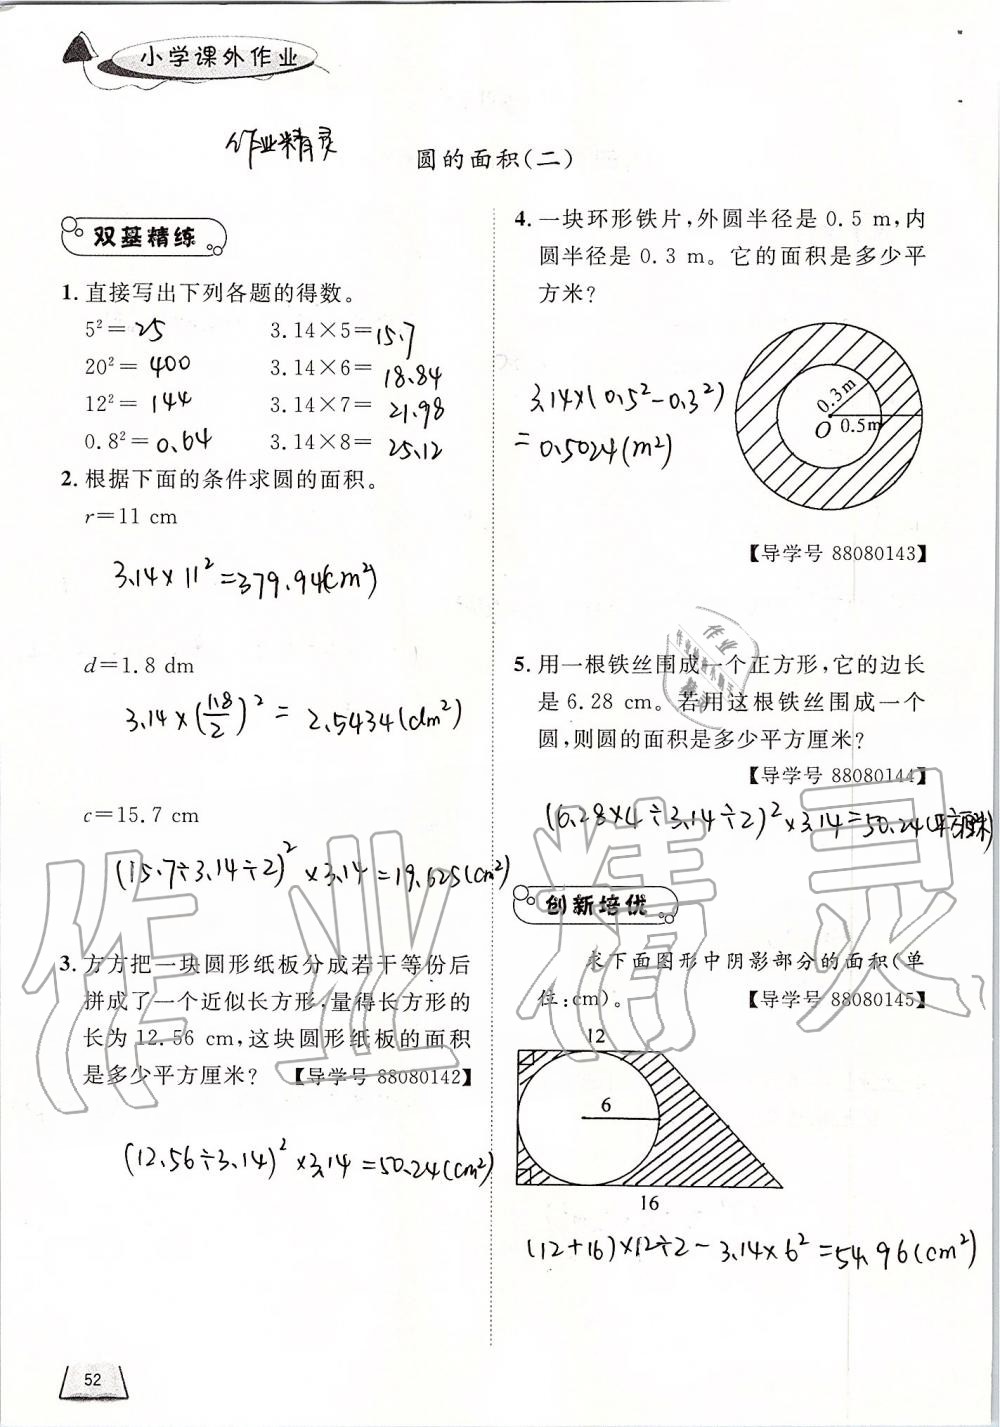 小学课外作业
作业精灵
圆的面积(二)
双基精练
1. 直接写出下列各题的得数。
5²= 25 3.14×5= 15.7
20²= 400 3.14×6= 18.84
12²= 144 3.14×7= 21.98
0.8²= 0.64 3.14×8= 25.12
2. 根据下面的条件求圆的面积。
r=11 cm
3.14×11²=379.94(cm²)
d=1.8 dm
3.14×(1.8/2)²=2.5434(dm²)
c=15.7 cm
(15.7÷3.14÷2)²×3.14=19.625(cm²)
3. 方方把一块圆形纸板分成若干等份后
拼成了一个近似长方形,量得长方形的
长为12.56 cm,这块圆形纸板的面积
是多少平方厘米? 【导学号 88080142】
(12.56÷3.14)²×3.14=50.24(cm²)
4. 一块环形铁片,外圆半径是 0.5 m,内
圆半径是 0.3 m。它的面积是多少平
方米?
3.14×(0.5²-0.3²)
=0.5024(m²)
0.3m
O 0.5m
【导学号 88080143】
5. 用一根铁丝围成一个正方形,它的边长
是 6.28 cm。若用这根铁丝围成一个
圆,则圆的面积是多少平方厘米?
【导学号 88080144】
(6.28×4÷3.14÷2)²×3.14=50.24(平方厘米)
创新培优
求下面图形中阴影部分的面积(单
位:cm)。 【导学号 88080145】
12
6
16
(12+16)×12÷2-3.14×6²=54.96(cm²)
52
作业精灵